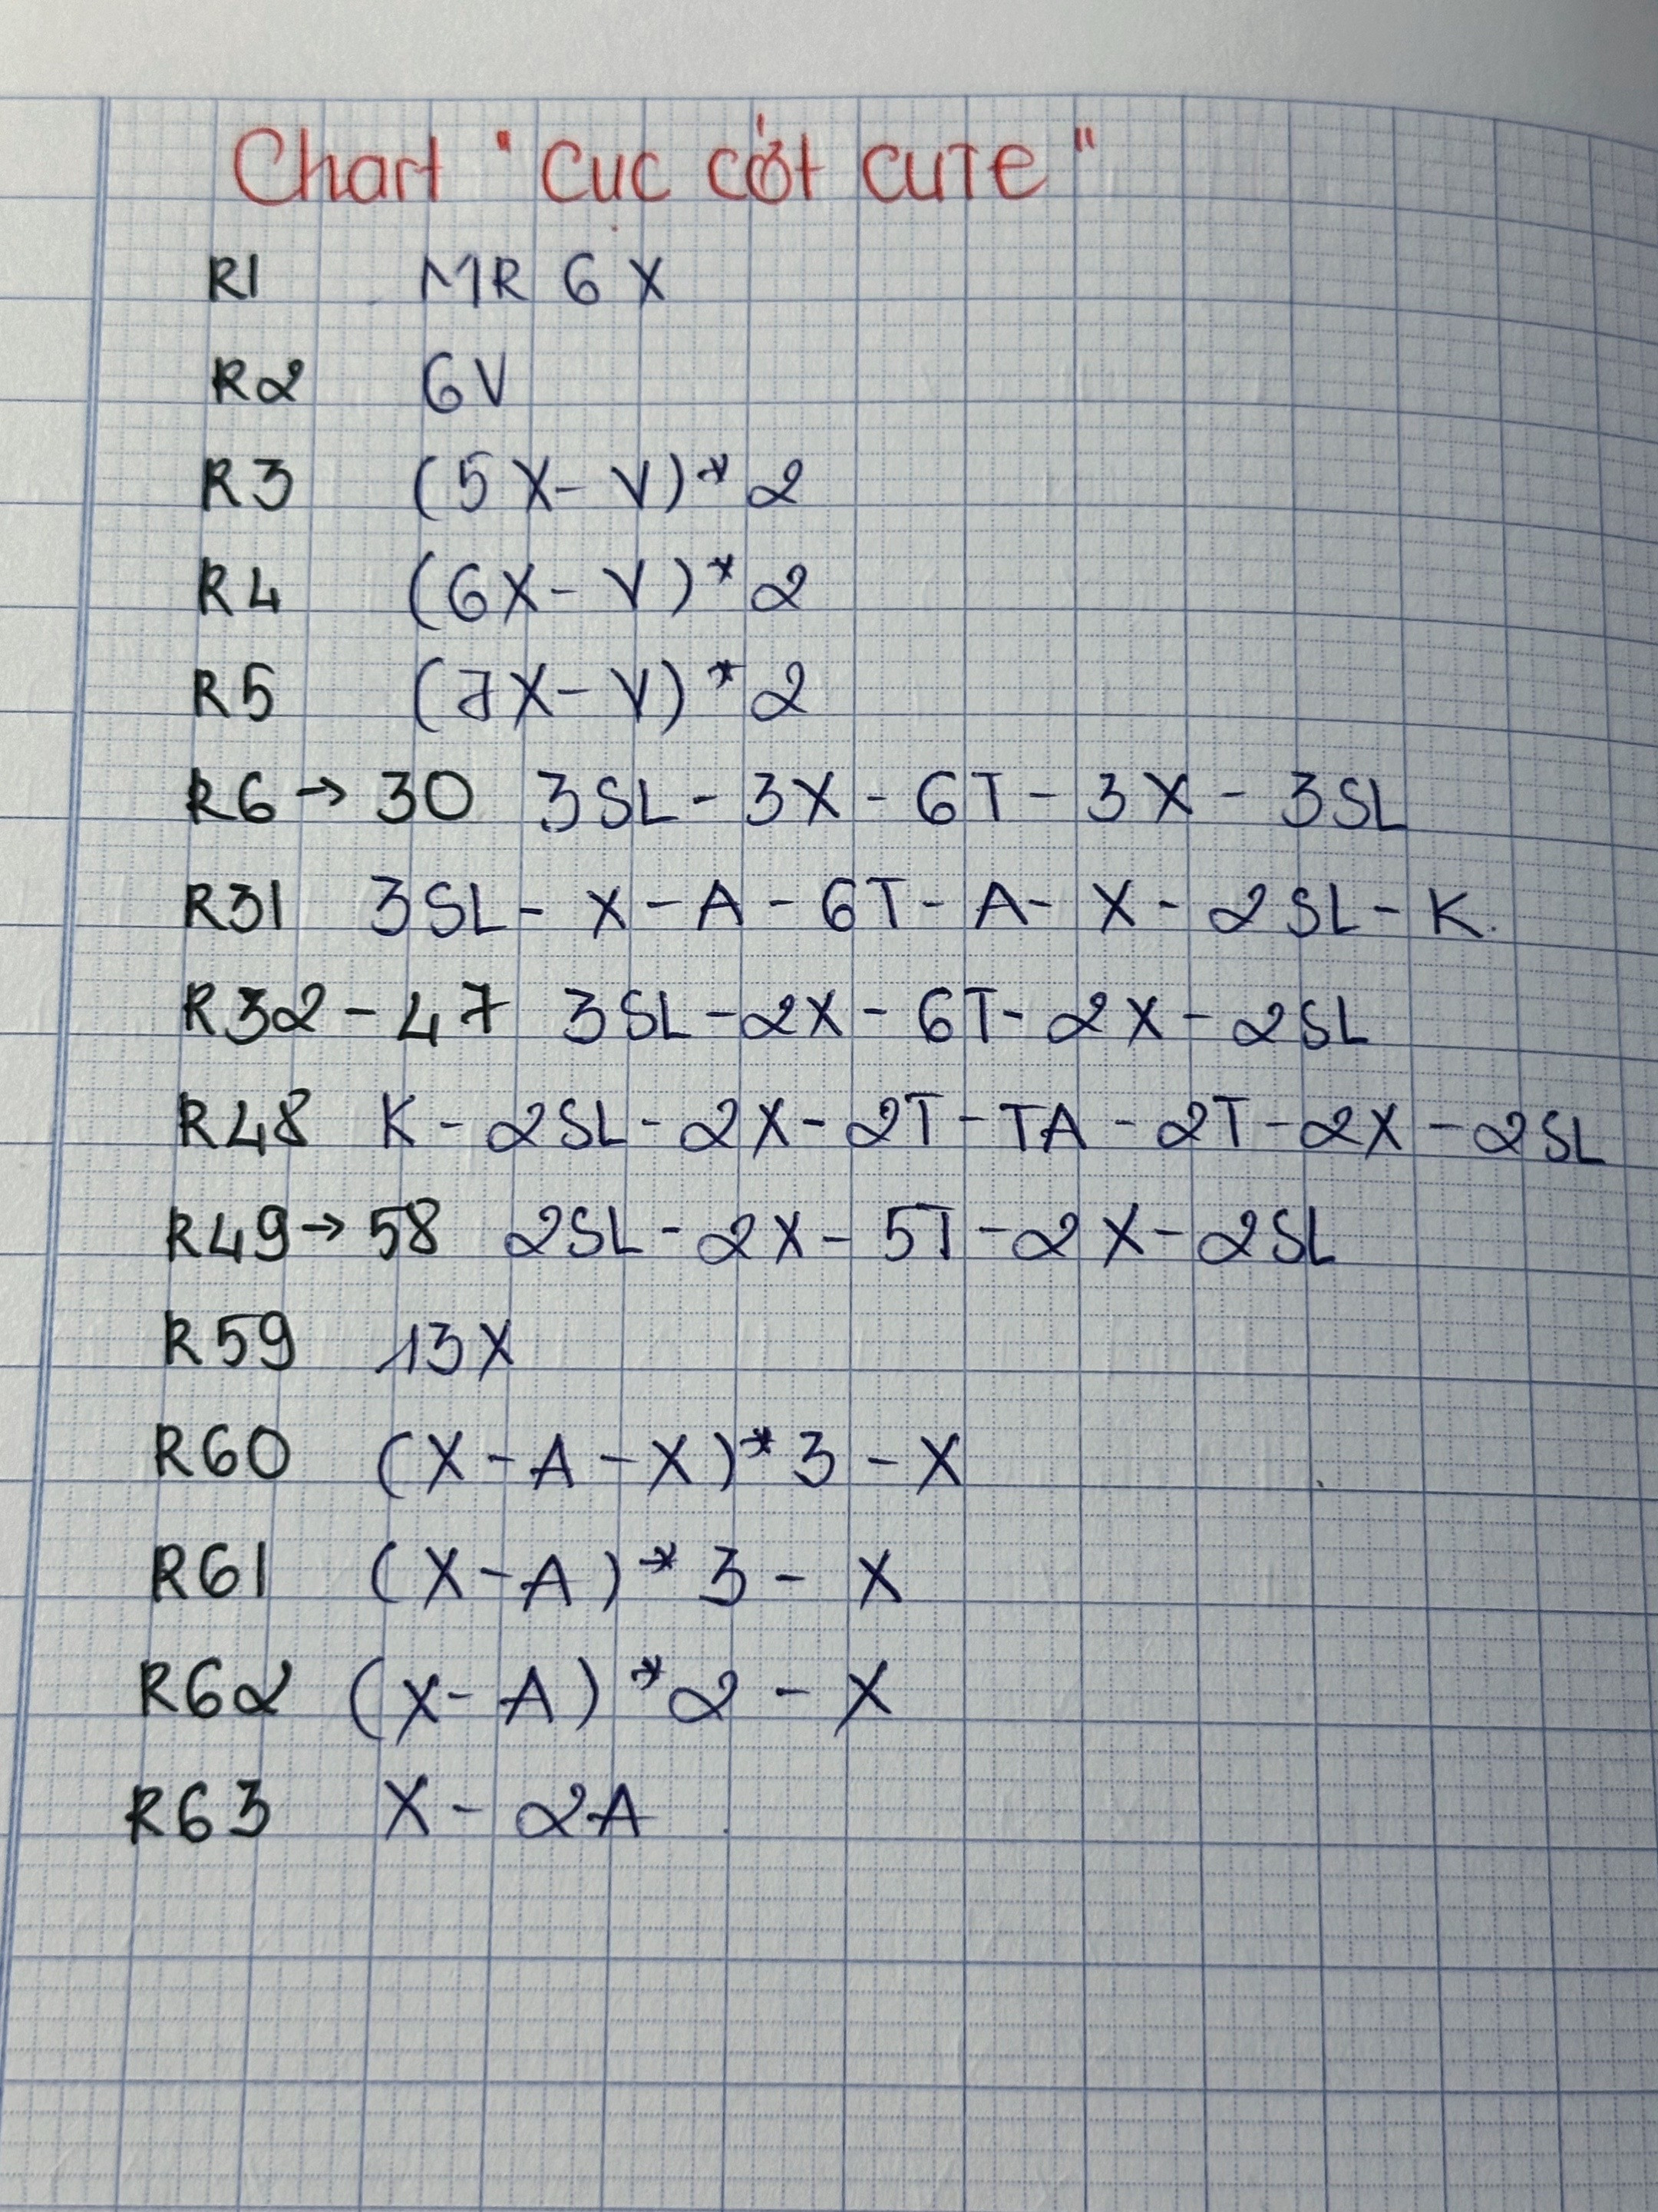 Chart "Cuc cớt cute"
R1 MR 6 X
R2 6V
R3 (5X - V)* 2
R4 (6X - V)* 2
R5 (7X - V)* 2
R6 → 30 3SL - 3X - 6T - 3X - 3SL
R31 3SL - X - A - 6T - A - X - 2SL - K.
R32 - 47 3SL - 2X - 6T - 2X - 2SL
R48 K - 2SL - 2X - 2T - TA - 2T - 2X - 2SL
R49 → 58 2SL - 2X - 5T - 2X - 2SL
R59 13X
R60 (X - A - X)* 3 - X
R61 (X - A)* 3 - X
R62 (X - A)* 2 - X
R63 X - 2A